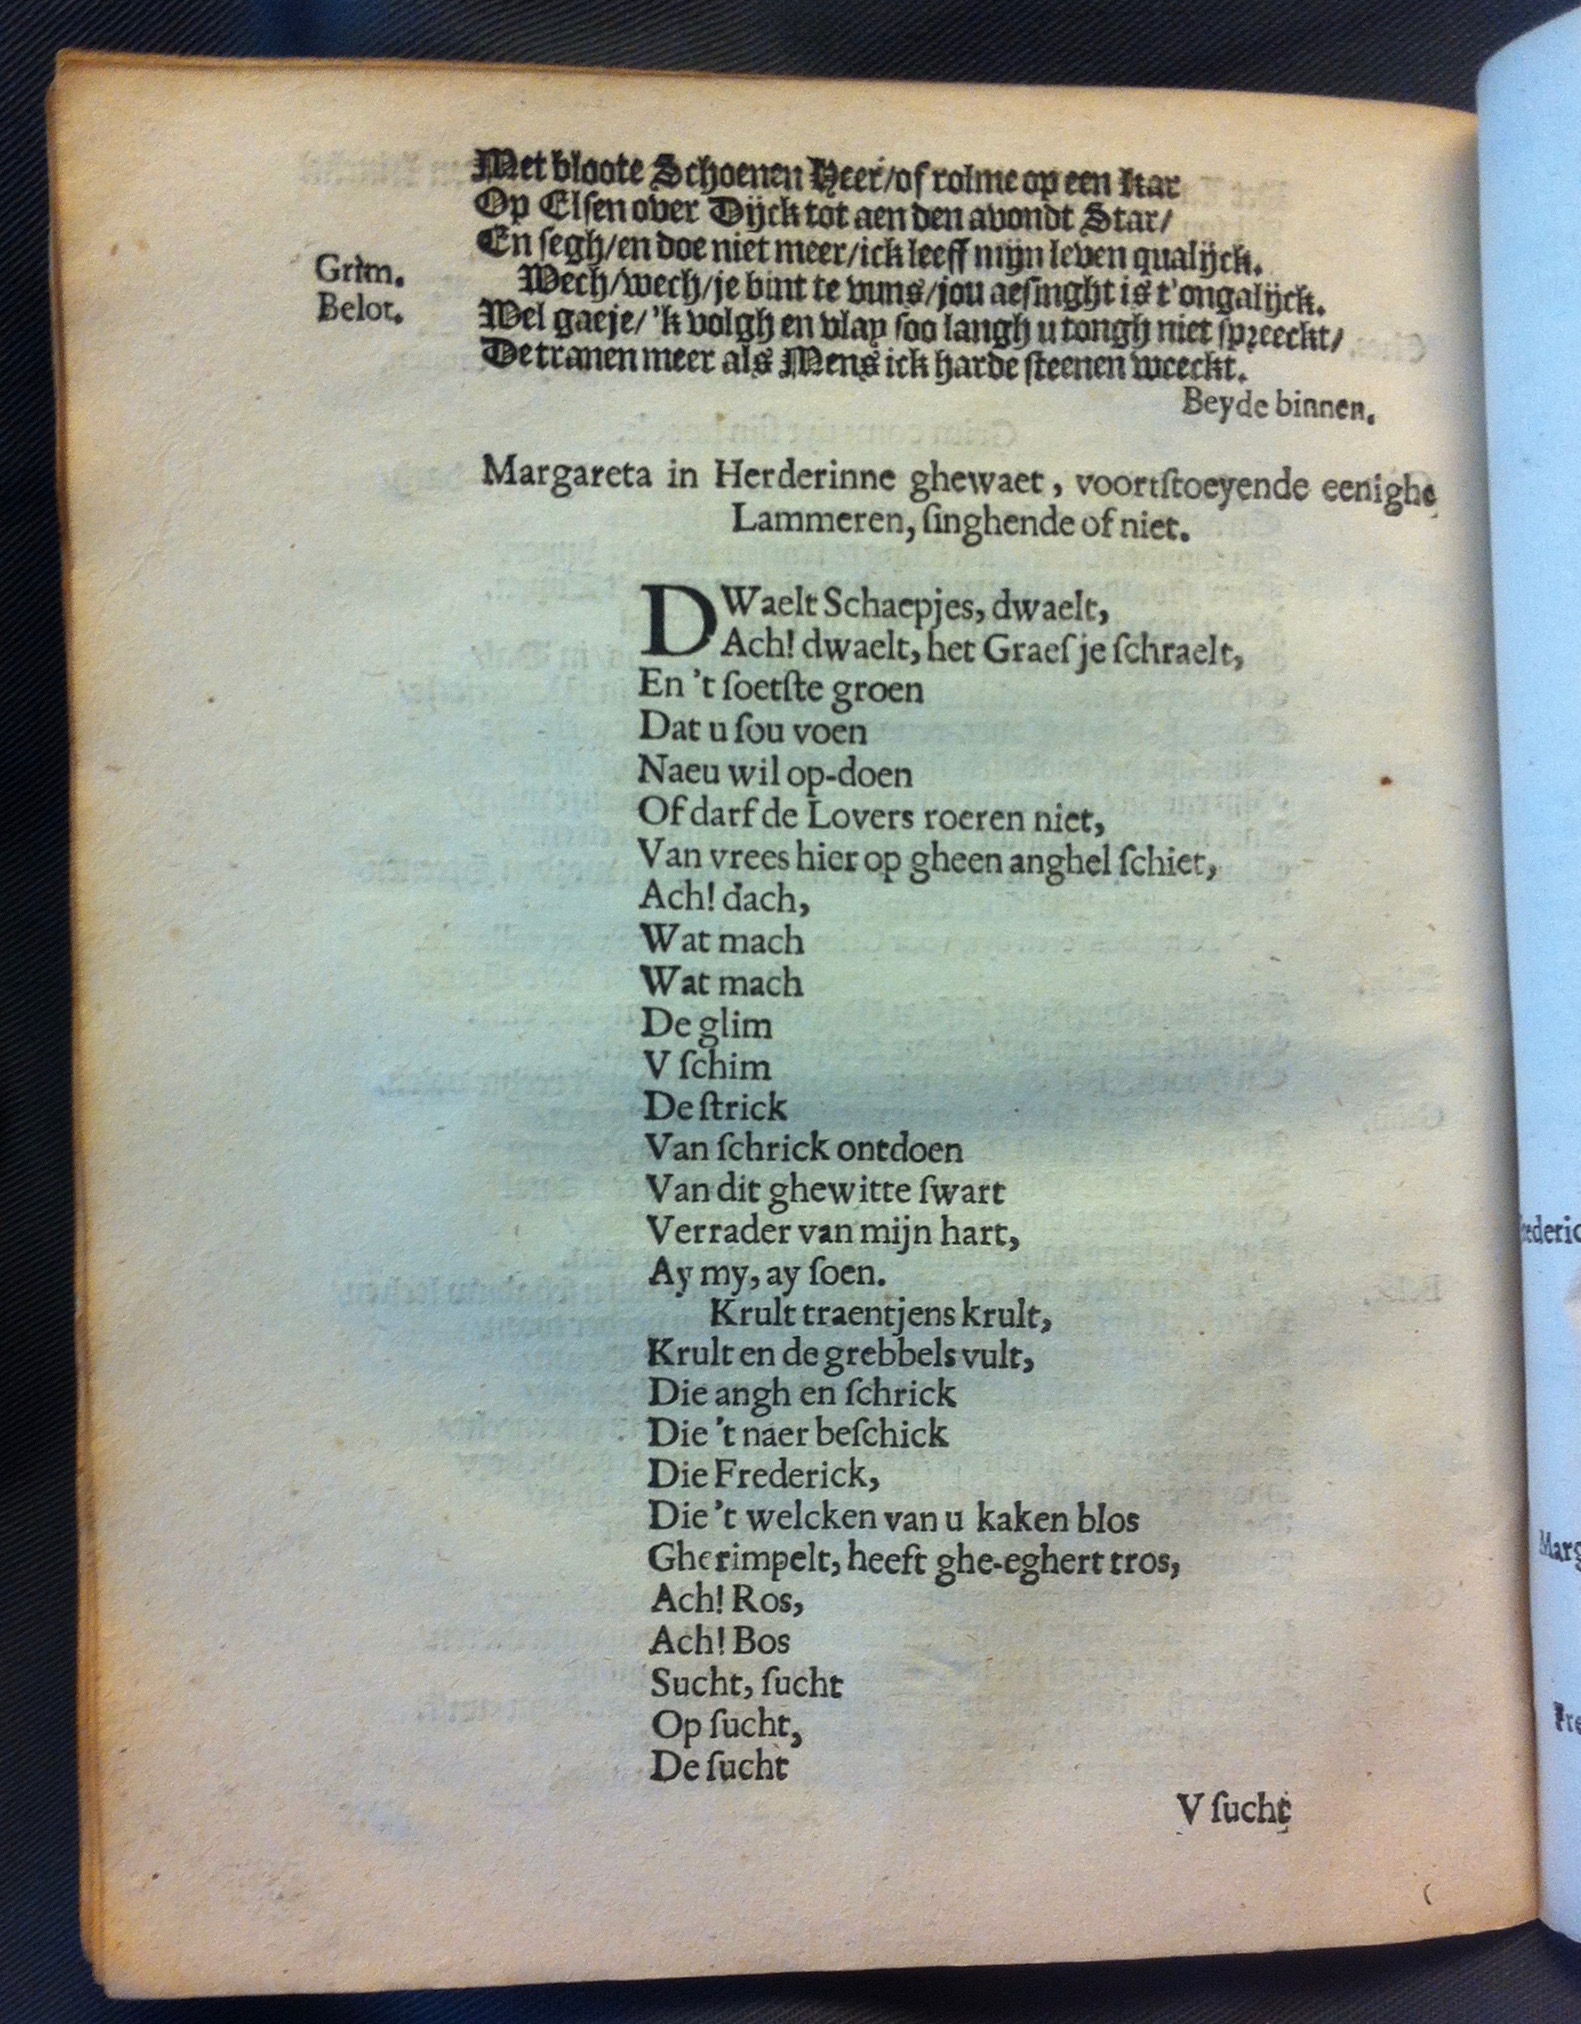 Met bloote Schoenen Heer/of rolme op een kar
Op Elsen over Dijck tot aen den avondt Star/
En segh/en doe niet meer/ick leeff mijn leven qualijck.
Grim. Wech/wech/je bint te vuns/jou aesinght is t'ongalijck.
Belot. Wel gaeje/'k volgh en vlay soo langh u tongh niet spreeckt/
De tranen meer als Mens ick harde steenen weeckt.
Beyde binnen.
Margareta in Herderinne ghewaet, voortſtoeyende eenighe
Lammeren, ſinghende of niet.
DWaelt Schaepjes, dwaelt,
Ach! dwaelt, het Graeſ je ſchraelt,
En 't ſoetſte groen
Dat u ſou voen
Naeu wil op-doen
Of darf de Lovers roeren niet,
Van vrees hier op gheen anghel ſchiet,
Ach! dach,
Wat mach
Wat mach
De glim
V ſchim
De ſtrick
Van ſchrick ontdoen
Van dit ghewitte ſwart
Verrader van mijn hart,
Ay my, ay ſoen.
Krult traentjens krult,
Krult en de grebbels vult,
Die angh en ſchrick
Die 't naer beſchick
Die Frederick,
Die 't welcken van u kaken blos
Gherimpelt, heeft ghe-eghert tros,
Ach! Ros,
Ach! Bos
Sucht, ſucht
Op ſucht,
De ſucht
V ſucht